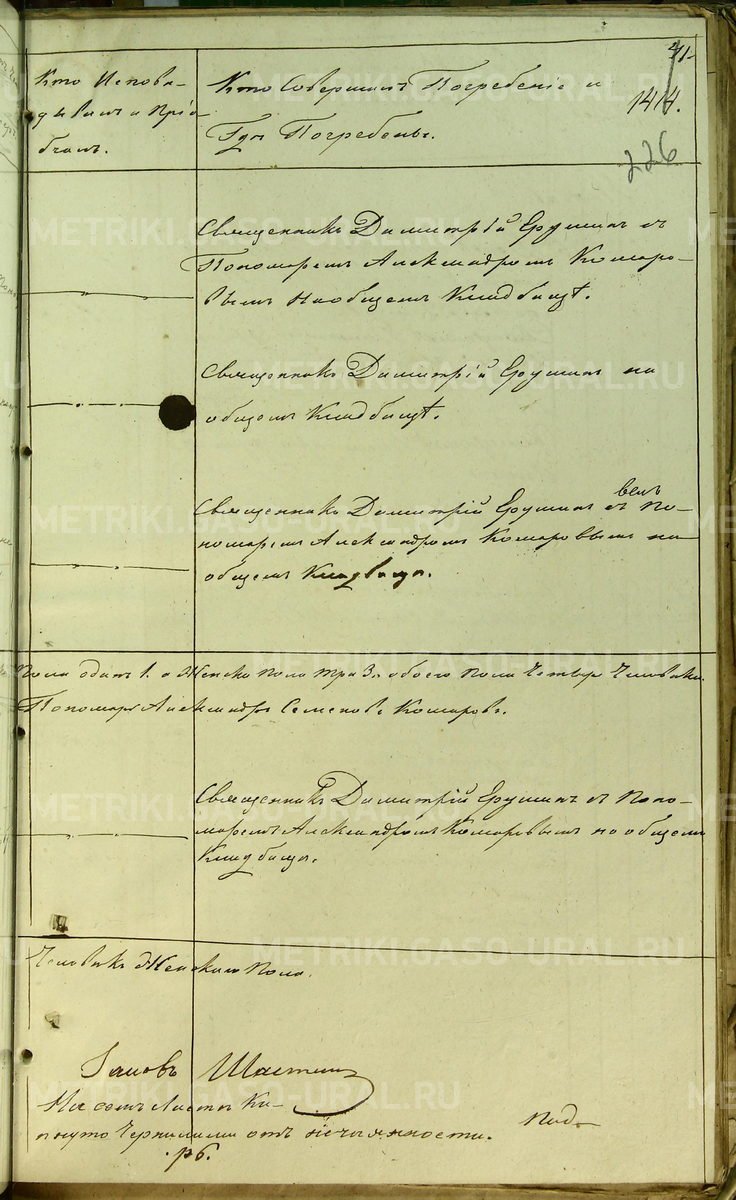 71.
1414.
226
Кто Исповѣ-
дывалъ и Пріо-
бщалъ.
Кто Совершалъ Погребеніе и
Гдѣ Погребены.
Священникъ Димитрій Ерушинъ съ
Пономаремъ Александромъ Комаро-
вымъ на общемъ Кладбищѣ.
Священникъ Димитрій Ерушинъ на
общемъ Кладбищѣ.
Священникъ Димитрій Ерушинъ съ По-
номаремъ Александромъ Комаровымъ на
общемъ Кладбище.
пола одинъ 1. а Женска пола три 3. обоего пола Четыре Человека.
Пономарь Александръ Семеновъ Комаровъ.
Священникъ Димитрій Ерушинъ съ Поно-
маремъ Александромъ Комаровымъ на общемъ
Кладбище.
Человекъ Женскаго пола.
Іаковъ Шастинъ
На семъ Листѣ Ка-
пнуто Чернилами отъ нечаянности.
METRIKI.GASO-URAL.RU